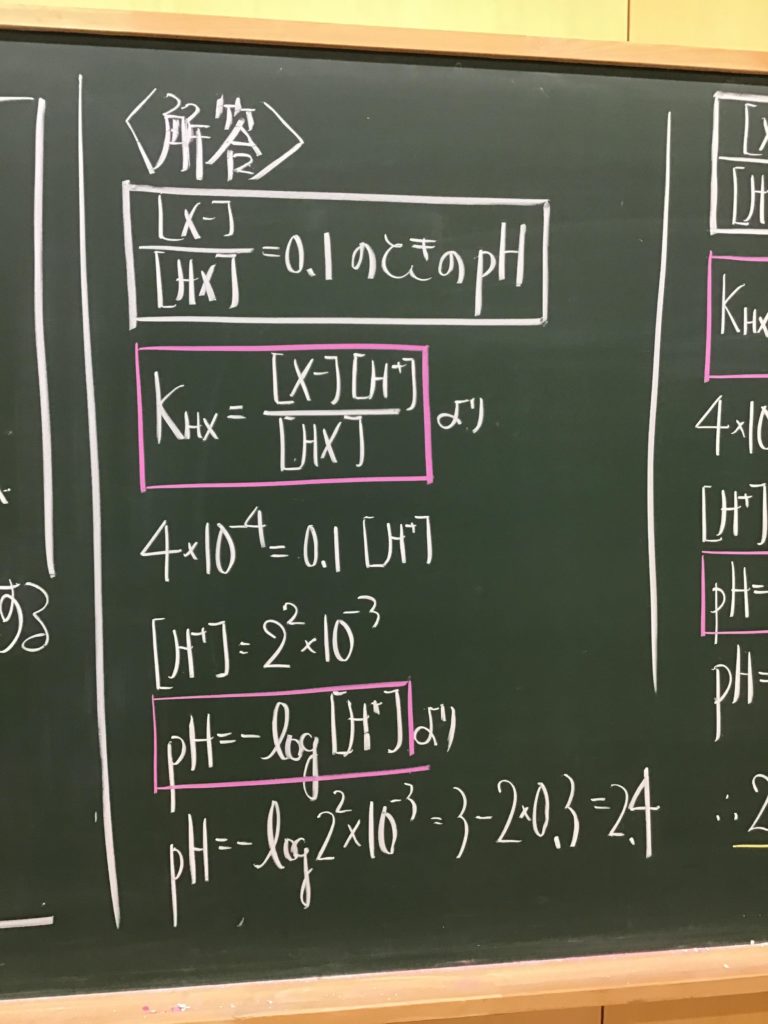 〈解答〉
[X-]/[HX] = 0.1 のときの pH
K_HX = [X-][H⁺]/[HX] より
4×10⁻⁴ = 0.1 [H⁺]
[H⁺] = 2²×10⁻³
pH = -log [H⁺] より
pH = -log 2²×10⁻³ = 3-2×0.3 = 2.4
する
K_HX
4×10
[H⁺]
pH=
pH=
∴ 2